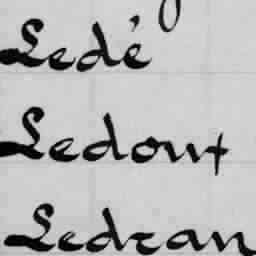 Ledé
Ledout
Ledran